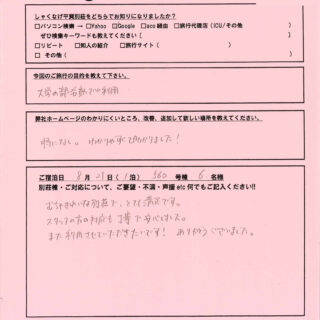 しゃくなげ平貸別荘をどちらでお知りになりましたか?
□パソコン検索 → □Yahoo □Google □aco 経由 □旅行代理店(ICU/その他 )
ぜひ検索キーワードも教えてください( )
□リピート □知人の紹介 □旅行サイト( )
□ その他( )
今回のご旅行の目的を教えて下さい。
大学の部活動での利用
弊社ホームページのわかりにくいところ、改善、追加して欲しい場所を教えてください。
特になし。 わかりやすくて助かりました!
ご宿泊日 8 月 29 日 ( 1 泊) 360 号棟 6 名様
別荘棟・ご対応について、ご要望・不満・声援 etc 何でもご記入ください!!
むちゃきれいな別荘で、とても満足です。
スタッフの方の対応も丁寧で安心しました。
また利用させていただきたいです! ありがとうございました。